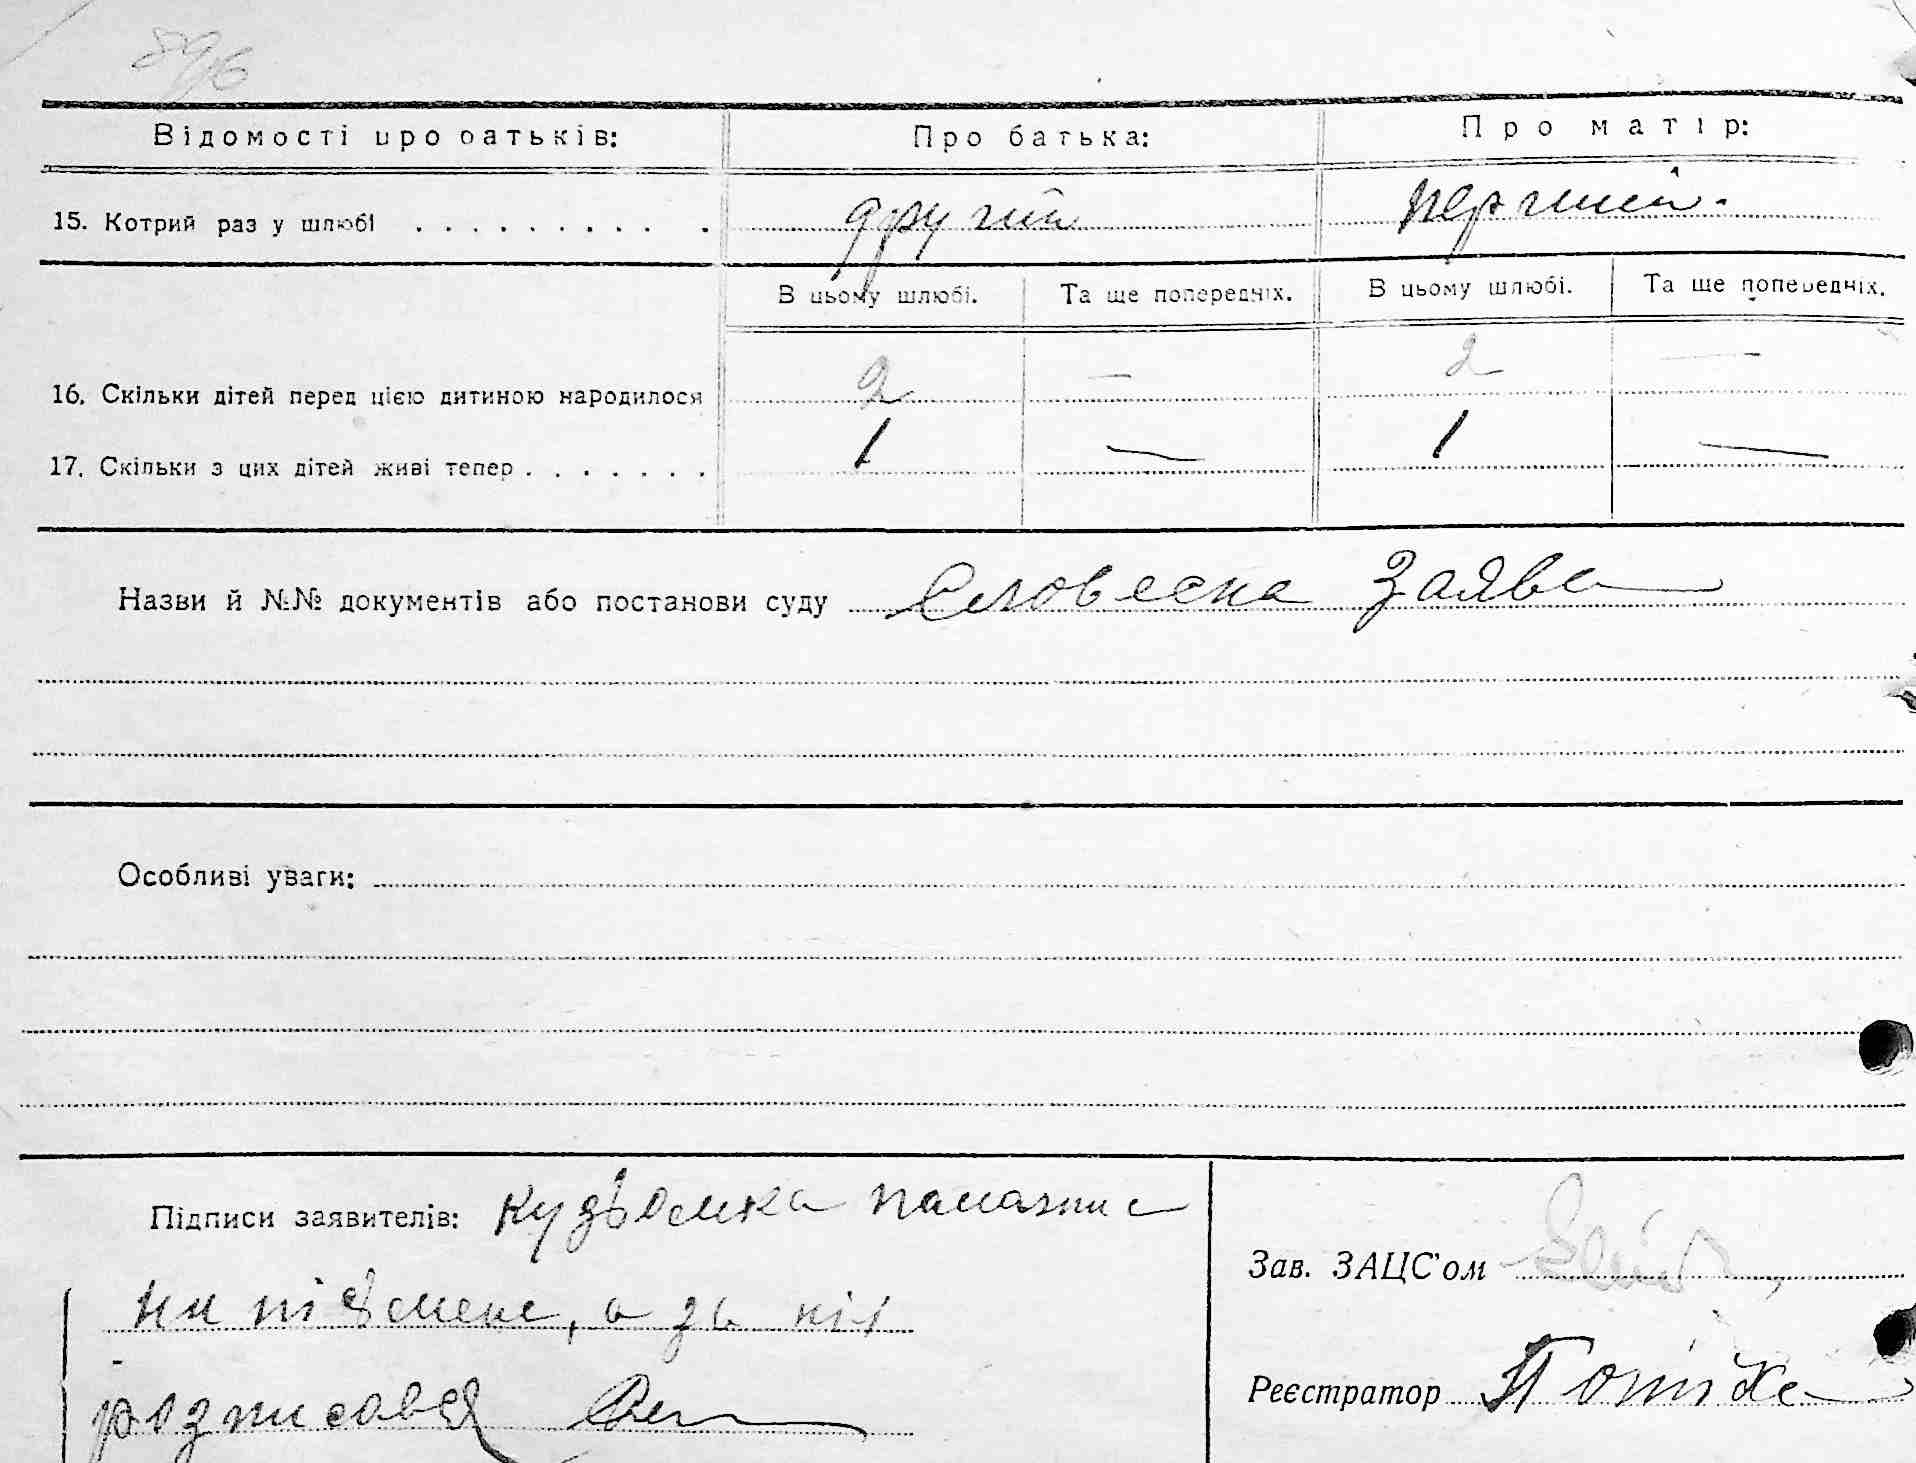 896
Відомості про батьків: Про батька: Про матір:
15. Котрий раз у шлюбі . . . . . . . . . . другий перший.
В цьому шлюбі. Та ще попередніх. В цьому шлюбі. Та ще попередніх.
16. Скільки дітей перед цією дитиною народилося 2 — 2 —
17. Скільки з цих дітей живі тепер . . . . . . . 1 — 1 —
Назви й №№ документів або постанови суду Словесна Заява
Особливі уваги:
Підписи заявителів: Кудьомка
Зав. ЗАЦС'ом
а за ніх
Реєстратор
розписався